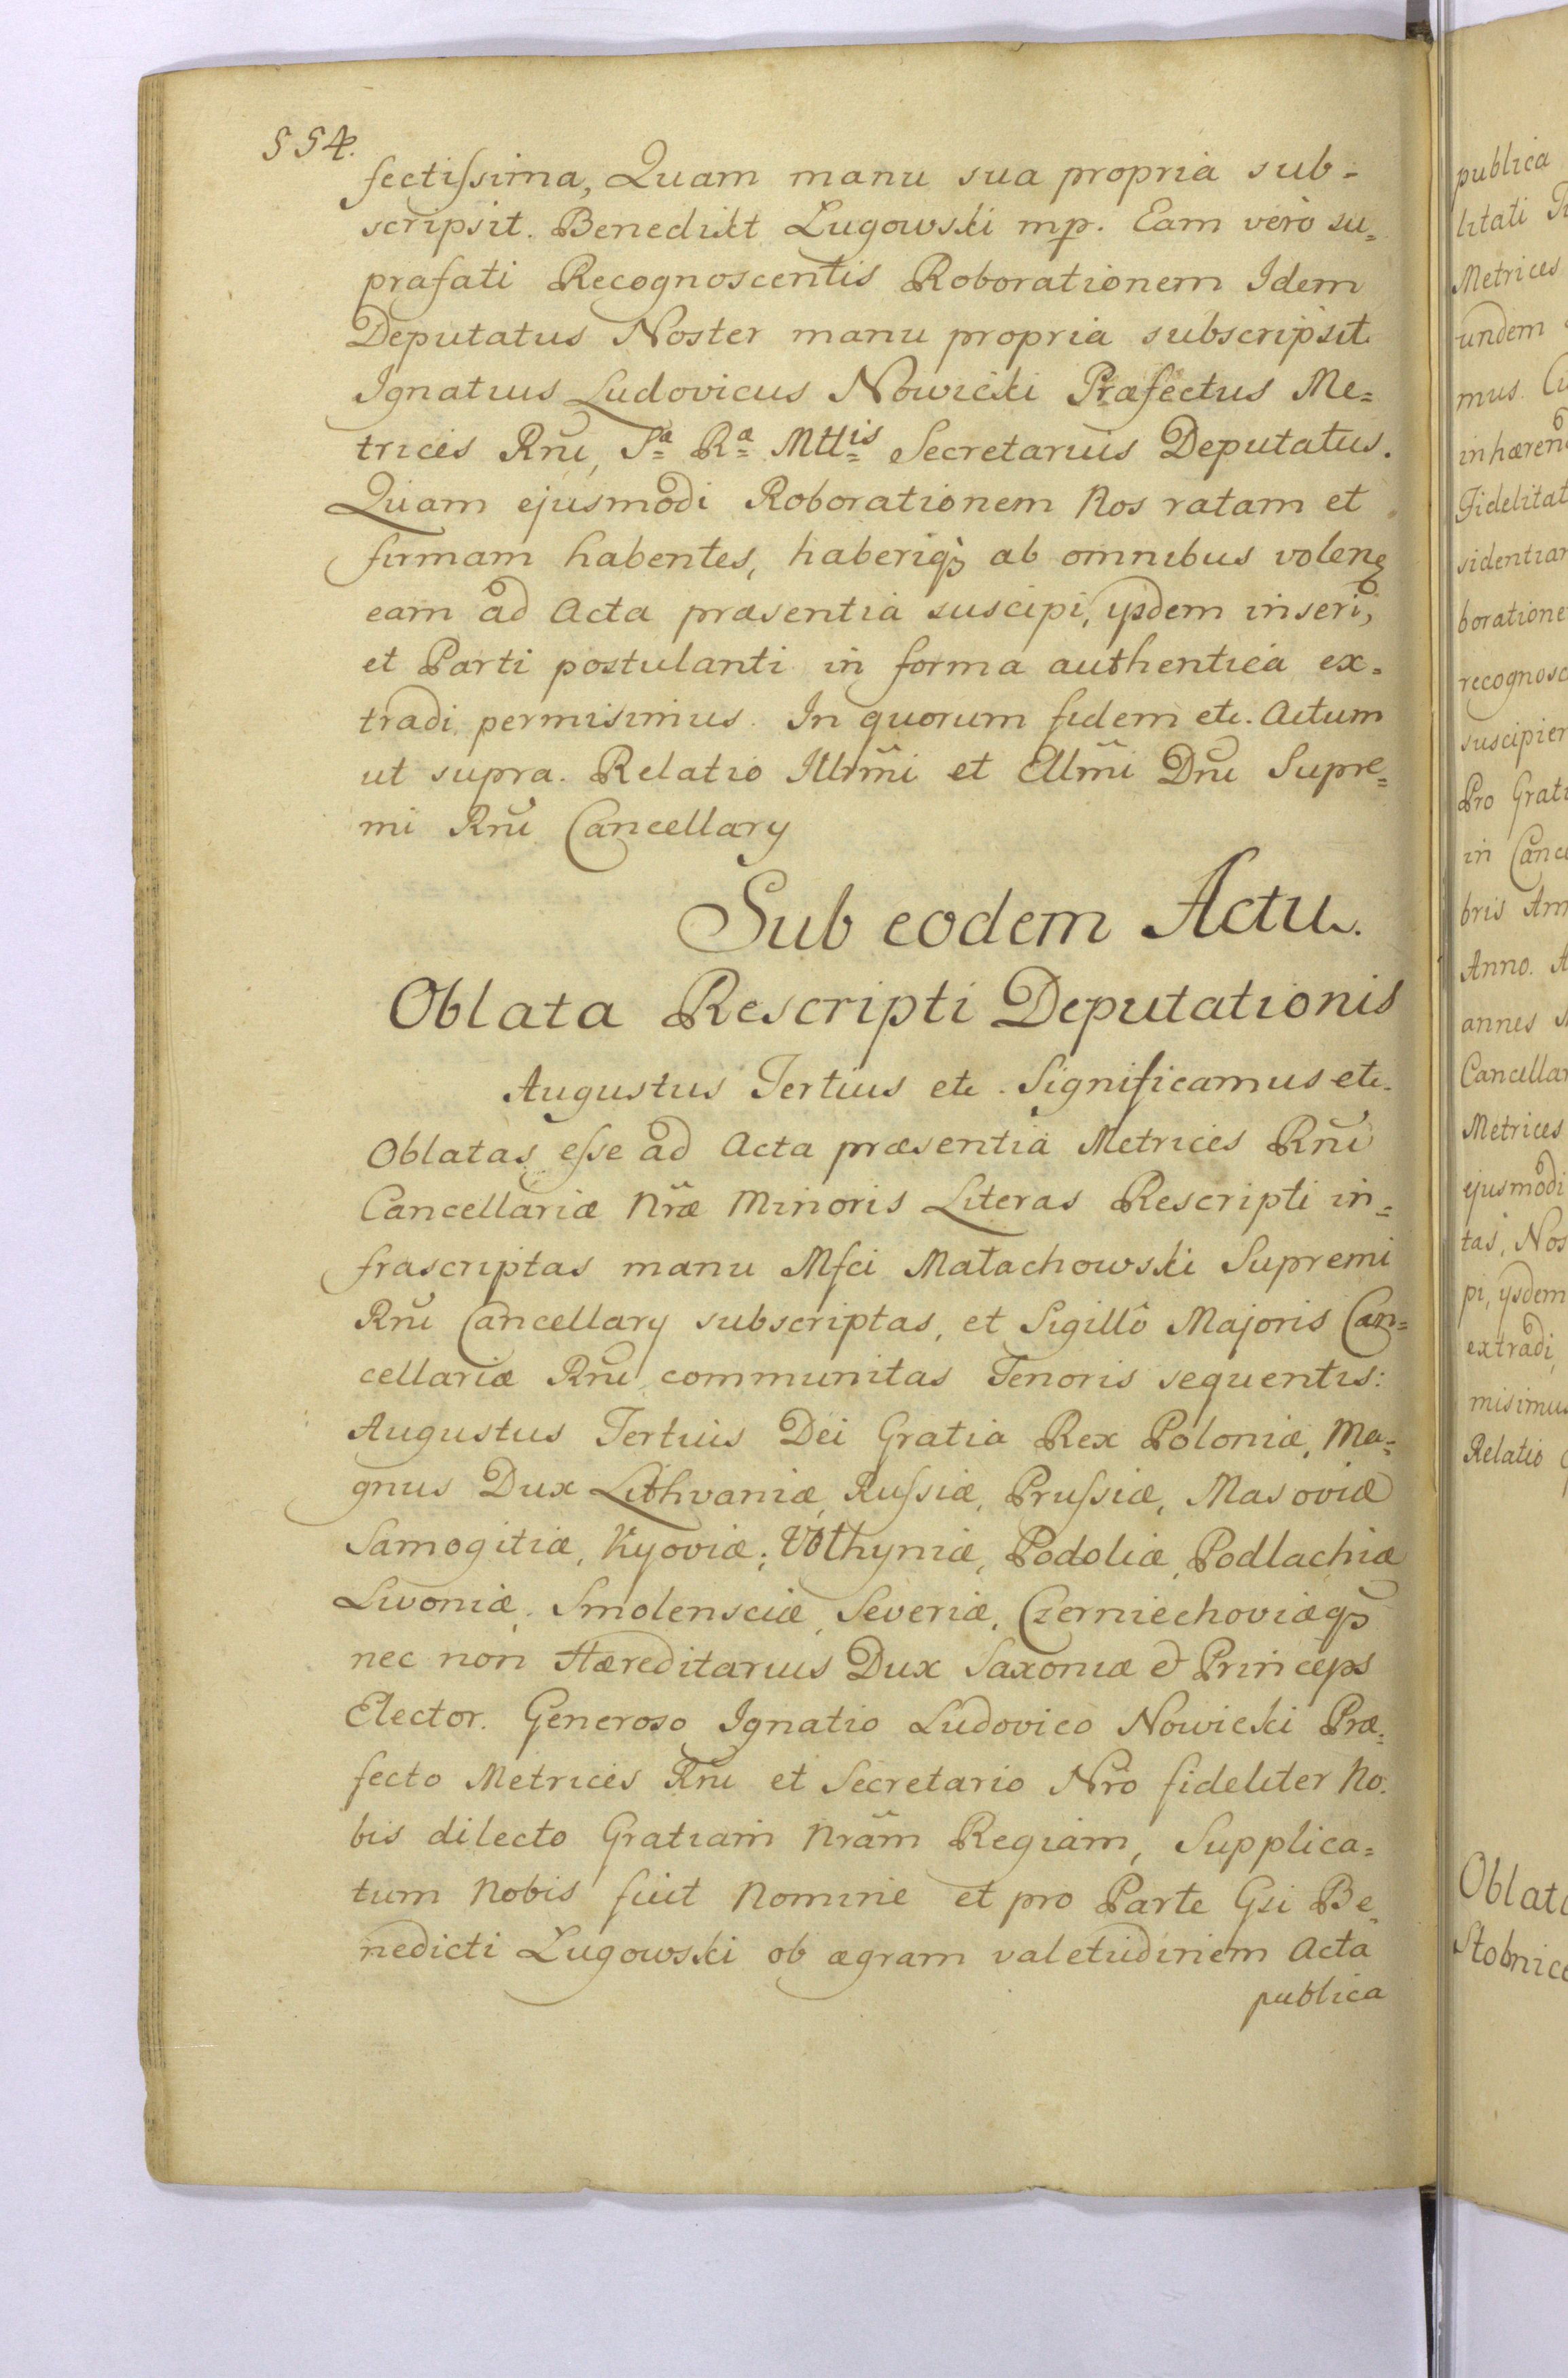 554.
fectiſsima, Quam manu sua propria sub=
scripsit. Benedikt Lugowski mp. Eam vero su=
prafati Recognoscentis Roborationem Idem
Deputatus Noster manu propria subscripsit.
Ignatius Ludovicus Nowicki Præfectus Me=
trices Rñi, Sª Rª Mttis Secretarius Deputatus.
Quam ejusmodi Roborationem Nos ratam et
firmam habentes, haberiqꝫ ab omnibus volenꝫ
eam ad Acta præsentia suscipi, ijsdem inseri,
et Parti postulanti in forma authentica ex=
tradi permisimus. In quorum fidem etc. Actum
ut supra. Relatio Illrmi et Ellmi Dñi Supre=
mi Rñi Cancellary
Sub eodem Actu.
Oblata Rescripti Deputationis
Augustus Tertius etc. Significamus etc.
Oblatas eſse ad Acta præsentia Metrices Rñi
Cancellariæ Nræ Minoris Literas Rescripti in=
frascriptas manu Mfci Małachowski Supremi
Rñi Cancellary subscriptas, et Sigillô Majoris Can=
cellariæ Rñi communitas Tenoris sequentis:
Augustus Tertius Dei Gratia Rex Poloniæ, Ma=
gnus Dux Lithvaniæ, Ruſsiæ, Pruſsiæ, Masoviæ
Samogitiæ, Kyoviæ, Vołhyniæ, Podoliæ, Podlachiæ
Livoniæ, Smolensciæ, Severiæ, Czerniechoviæqꝫ
nec non Hæreditarius Dux Saxoniæ & Princeps
Elector. Generoso Ignatio Ludovico Nowicki Præ=
fecto Metrices Rñi et Secretario Nrô fideliter No=
bis dilecto Gratiam Nrãm Regiam, Supplica=
tum Nobis fuit Nomine et pro Parte Gsi Be=
nedicti Lugowski ob ægram valetudinem Acta
publica
publica
litati
Metrices
undem
mus.
inhæren
Fidelitat
sidentiam
boratione
recognosc
suscipien
Pro Grati
in Cance
bris Ann
Anno. A
annes
Cancellar
Metrices
ejusmodi
tas, Nos
pi, ijsdem
extradi,
misimus
Relatio
Oblata
Stobnice